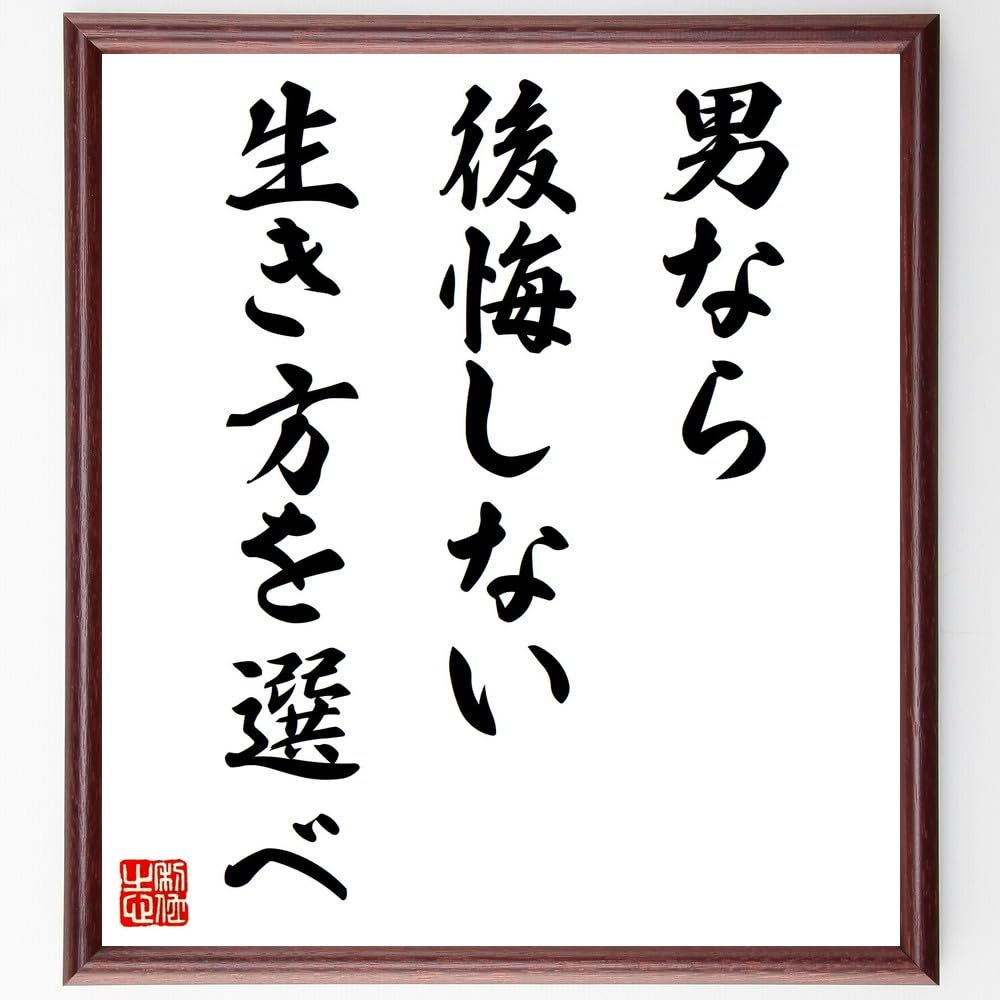 男なら
後悔しない
生き方を選べ